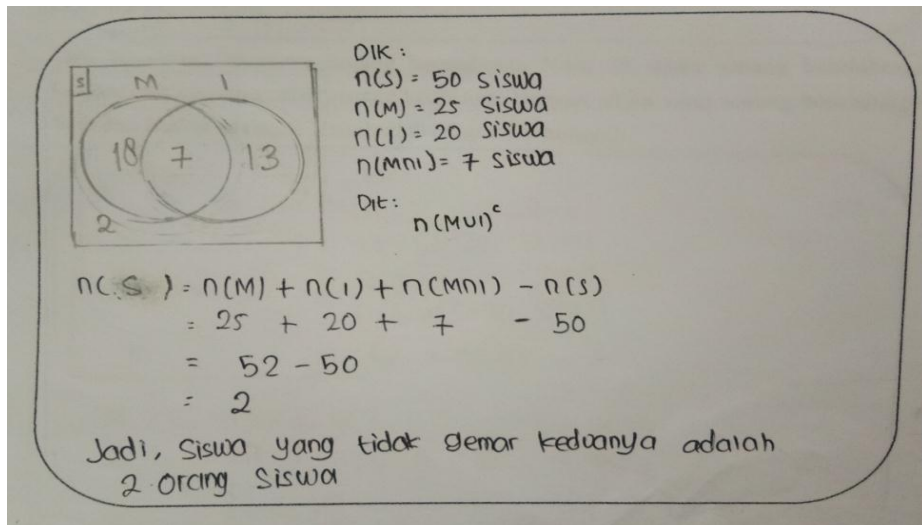 S M I
18 7 13
2
DIK :
n(S) = 50 Siswa
n(M) = 25 Siswa
n(I) = 20 Siswa
n(M∩I) = 7 Siswa
Dit :
n(M∪I)ᶜ
n(S) = n(M) + n(I) + n(M∩I) - n(S)
= 25 + 20 + 7 - 50
= 52 - 50
= 2
Jadi, Siswa yang tidak gemar keduanya adalah
2 orang Siswa